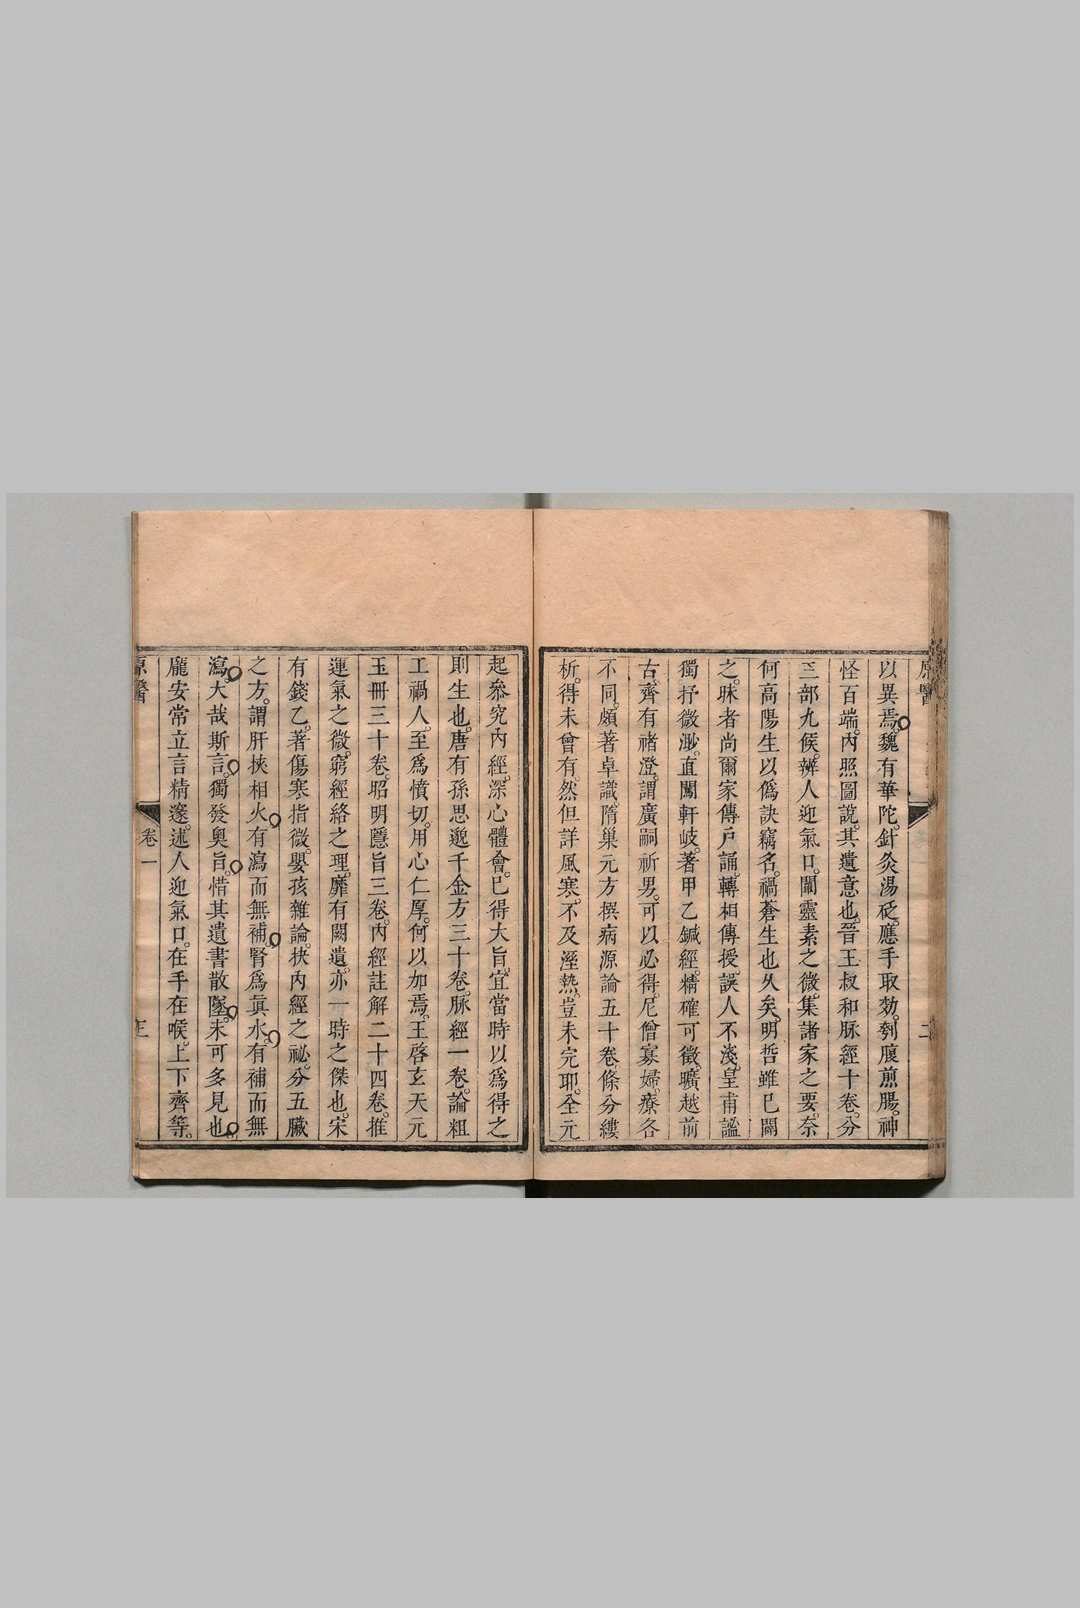 原醫
二
以異焉。魏有華陀。針灸湯砭。應手取効。刳腹煎腸。神
怪百端。內照圖說。其遺意也。晉王叔和脉經十卷。分
三部九候。辨人迎氣口。闡靈素之微。集諸家之要。奈
何高陽生以僞訣竊名。禍蒼生也久矣。明哲雖已闢
之。昧者尚爾家傳戶誦。轉相傳授。誤人不淺。皇甫謐
獨抒微渺。直闖軒岐。著甲乙鍼經。精確可徵。曠越前
古。齊有禇澄。謂廣嗣祈男。可以必得。尼僧寡婦。療各
不同。頗著卓識。隋巢元方撰病源論五十卷。條分縷
析。得未曾有。然但詳風寒。不及溼熱。豈未完耶。全元
起叅究內經。深心體會。已得大旨。宜當時以爲得之
則生也。唐有孫思邈千金方三十卷。脉經一卷。論粗
工禍人。至爲憤切。用心仁厚。何以加焉。王啓玄天元
玉冊三十卷。昭明隱旨三卷。內經註解二十四卷。推
運氣之微。窮經絡之理。靡有闕遺。亦一時之傑也。宋
有錢乙。著傷寒指微。嬰孩雜論。抉內經之祕。分五臟
之方。謂肝挾相火。有瀉而無補。腎爲眞水。有補而無
瀉。大哉斯言。獨發奧旨。惜其遺書散墜。未可多見也。
龐安常立言精邃。述人迎氣口。在手在喉。上下齊等。
原醫
卷一
三